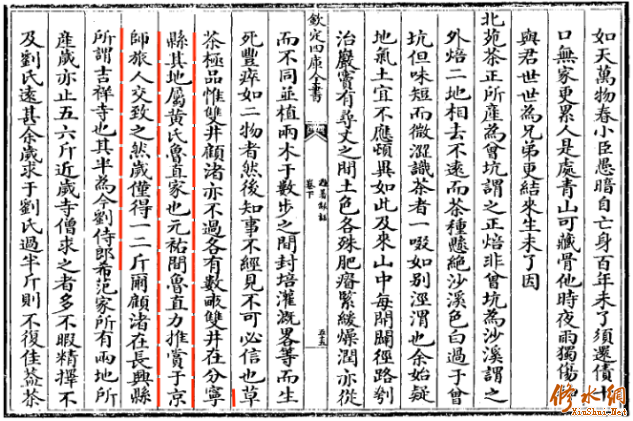 如天萬物春小臣愚暗自亡身百年未了須還債十
口無家更累人是處青山可藏骨他時夜雨獨傷神
與君世世為兄弟更結來生未了因
北苑茶正所產為曾坑謂之正焙非曾坑為沙溪謂之
外焙二地相去不遠而茶種懸絕沙溪色白過于曾
坑但味短而微澀識茶者一啜如別涇渭也余始疑
地氣土宜不應頓異如此及來山中每開闢徑路刳
治巖竇有尋丈之間土色各殊肥瘠緊緩燥潤亦從
欽定四庫全書
避暑録話
卷下
而不同並植兩木于數步之間封培灌溉畧等而生
死豐瘁如二物者然後知事不經見不可必信也草
茶極品惟雙井顧渚亦不過各有數畝雙井在分寧
縣其地屬黃氏魯直家也元祐間魯直力推賞于京
師旅人交致之然歲僅得一二斤爾顧渚在長興縣
所謂吉祥寺也其半為今劉侍郎希范家所有兩地所
產歲亦止五六斤近歲寺僧求之者多不暇精擇不
及劉氏遠甚余歲求于劉氏過半斤則不復佳葢茶
修水網
XiuShui.Net